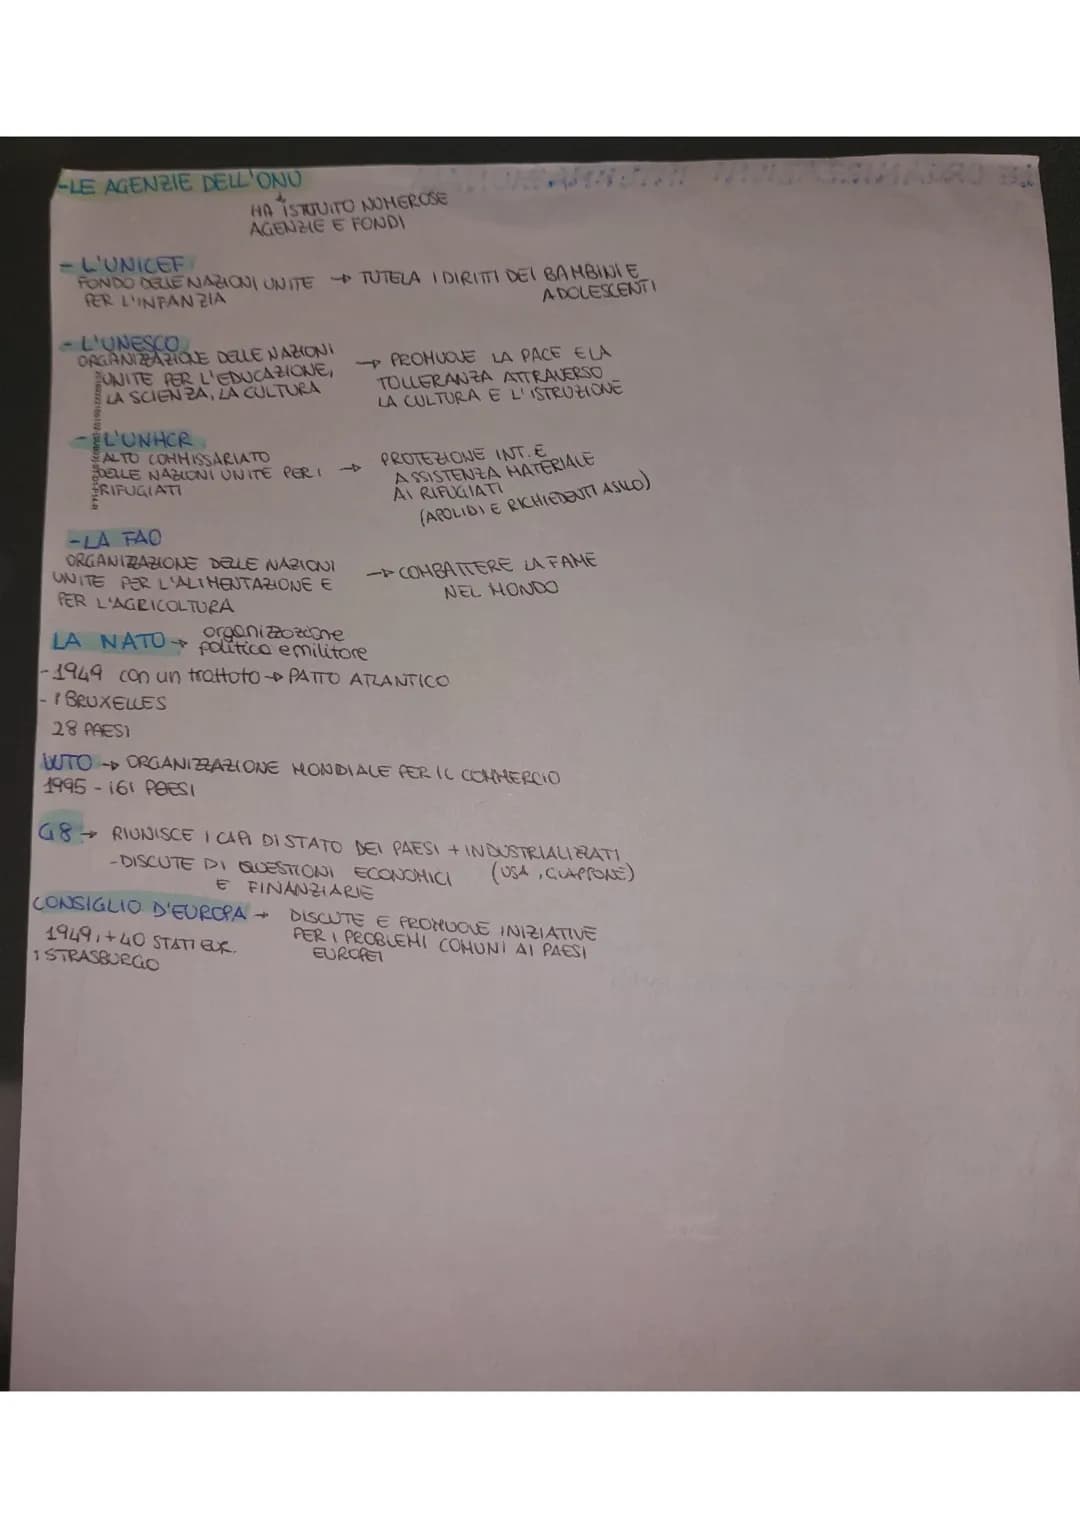 -LE AGENZIE DELL'ONU
HA ISTITUITO NUMEROSE
AGENZIE E FONDI
- L'UNICEF
FONDO DELLE NAZIONI UNITE → TUTELA I DIRITTI DEI BAMBINI E
PER L'INFANZIA ADOLESCENTI
- L'UNESCO
ORGANIZZAZIONE DELLE NAZIONI → PROMUOVE LA PACE E LA
UNITE PER L'EDUCAZIONE, TOLLERANZA ATTRAVERSO
LA SCIENZA, LA CULTURA LA CULTURA E L'ISTRUZIONE
- L'UNHCR
ALTO COMMISSARIATO PROTEZIONE INT. E
DELLE NAZIONI UNITE PER I → ASSISTENZA MATERIALE
RIFUGIATI AI RIFUGIATI
(APOLIDI E RICHIEDENTI ASILO)
-LA FAO
ORGANIZZAZIONE DELLE NAZIONI → COMBATTERE LA FAME
UNITE PER L'ALIMENTAZIONE E NEL MONDO
PER L'AGRICOLTURA
LA NATO → organizzazione
politica e militare
-1949 con un trattato → PATTO ATLANTICO
- BRUXELLES
28 PAESI
WTO → ORGANIZZAZIONE MONDIALE PER IL COMMERCIO
1995 - 161 PAESI
G8 → RIUNISCE I CAPI DI STATO DEI PAESI + INDUSTRIALIZZATI
-DISCUTE DI QUESTIONI ECONOMICI (USA, GIAPPONE)
E FINANZIARIE
CONSIGLIO D'EUROPA → DISCUTE E PROMUOVE INIZIATIVE
1949, +40 STATI EUR. PER I PROBLEMI COMUNI AI PAESI
STRASBURGO EUROPEI